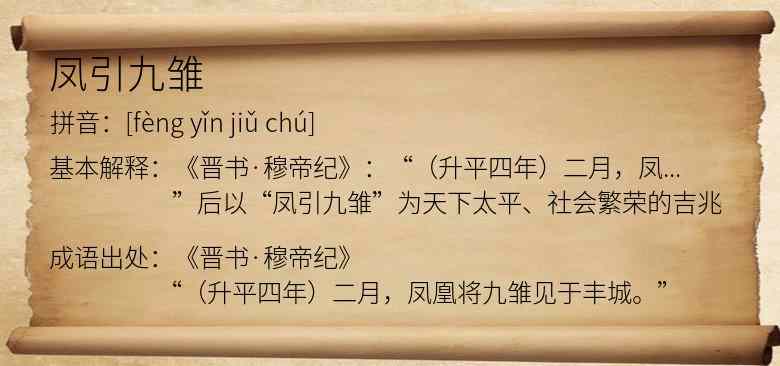 凤引九雏
拼音：[fèng yǐn jiǔ chú]
基本解释：《晋书·穆帝纪》：“（升平四年）二月，凤...
”后以“凤引九雏”为天下太平、社会繁荣的吉兆
成语出处：《晋书·穆帝纪》
“（升平四年）二月，凤凰将九雏见于丰城。”